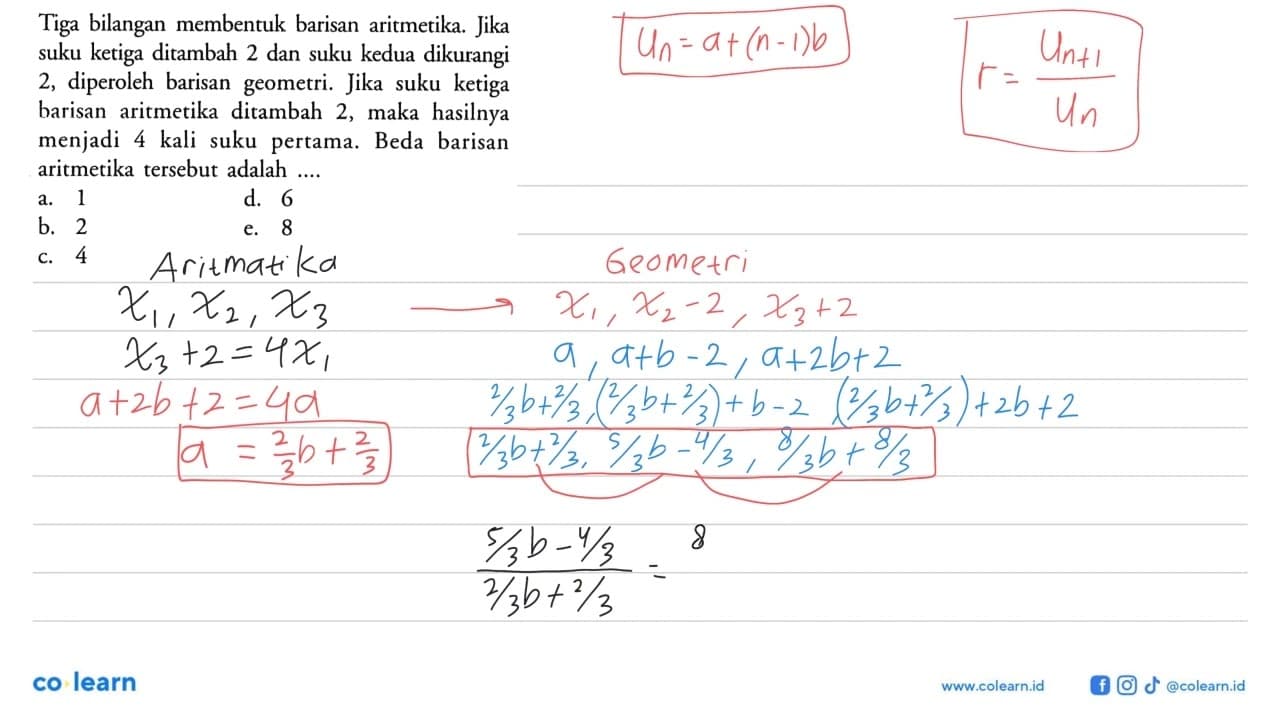 Tiga bilangan membentuk barisan aritmetika. Jika
suku ketiga ditambah 2 dan suku kedua dikurangi
2, diperoleh barisan geometri. Jika suku ketiga
barisan aritmetika ditambah 2, maka hasilnya
menjadi 4 kali suku pertama. Beda barisan
aritmetika tersebut adalah ....
a. 1 d. 6
b. 2 e. 8
c. 4
Un = a+(n-1)b
r = Un+1/Un
Aritmatika
x₁, x₂, x₃
x₃+2=4x₁
a+2b+2=4a
a = 2/3b+2/3
Geometri
x₁, x₂-2, x₃+2
a, a+b-2, a+2b+2
2/3b+2/3, (2/3b+2/3)+b-2 (2/3b+2/3)+2b+2
2/3b+2/3, 5/3b-4/3, 8/3b+8/3
5/3b-4/3 / 2/3b+2/3 = 8
co learn
www.colearn.id
@colearn.id